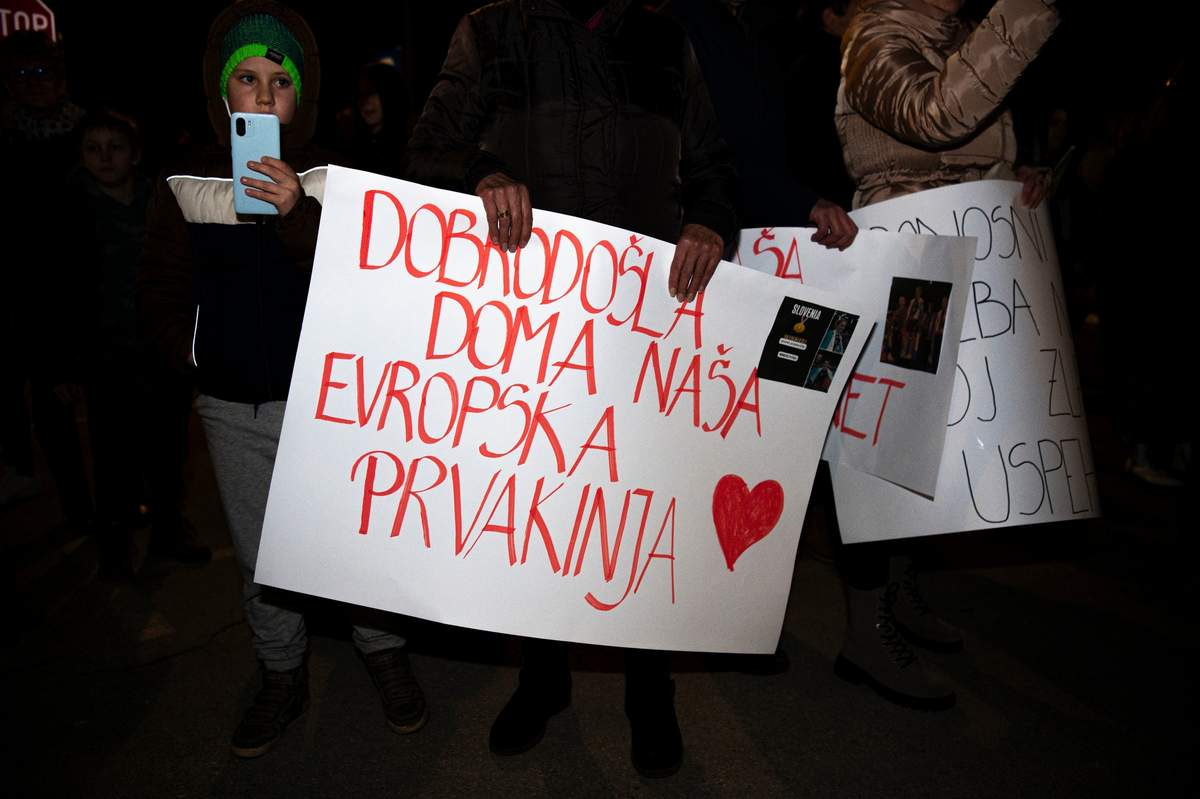 TOP
DOBRODOŠLA
DOMA NAŠA
EVROPSKA
PRVAKINJA
SLOVENIA
AŠA
ET
NOSNI
BA
OJ
USPEH